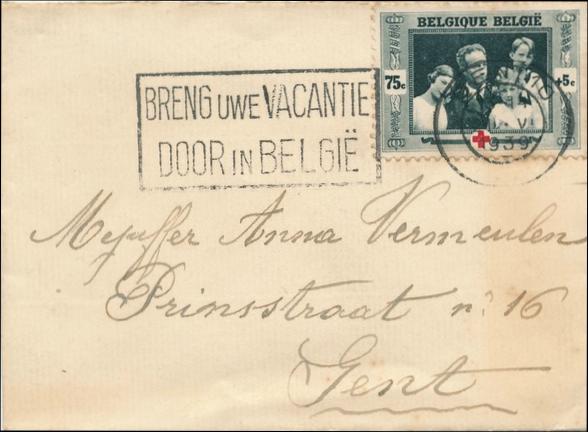 BELGIQUE BELGIË
75c +5c
BRENG UWE VACANTIE
DOOR IN BELGIË
VI
939
Mejuffer Anna Vermeulen
Prinsstraat n: 16
Gent